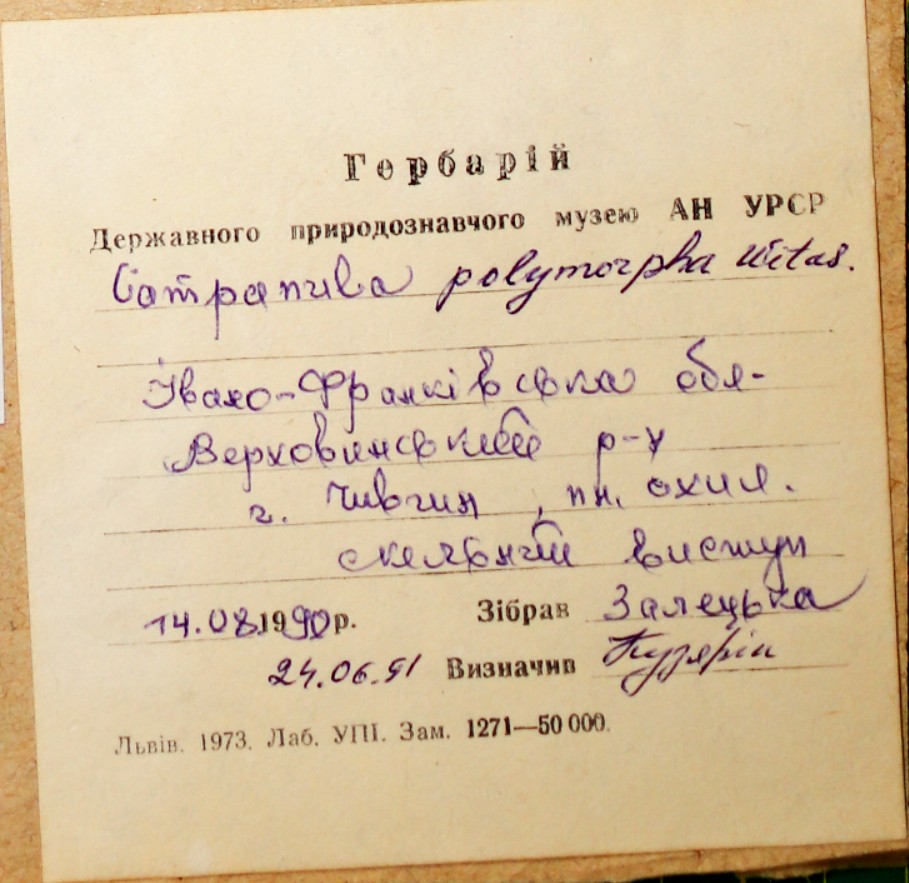 Гербарій
Державного природознавчого музею АН УРСР
Campanula polymorpha Witas.
Івано-Франківська обл.
Верховинський р-н
г. Чивчин, пн. схил.
скельний виступ
14.08.1990р. Зібрав Залецька
24.06.91 Визначив Кузярін
Львів. 1973. Лаб. УПІ. Зам. 1271—50 000.